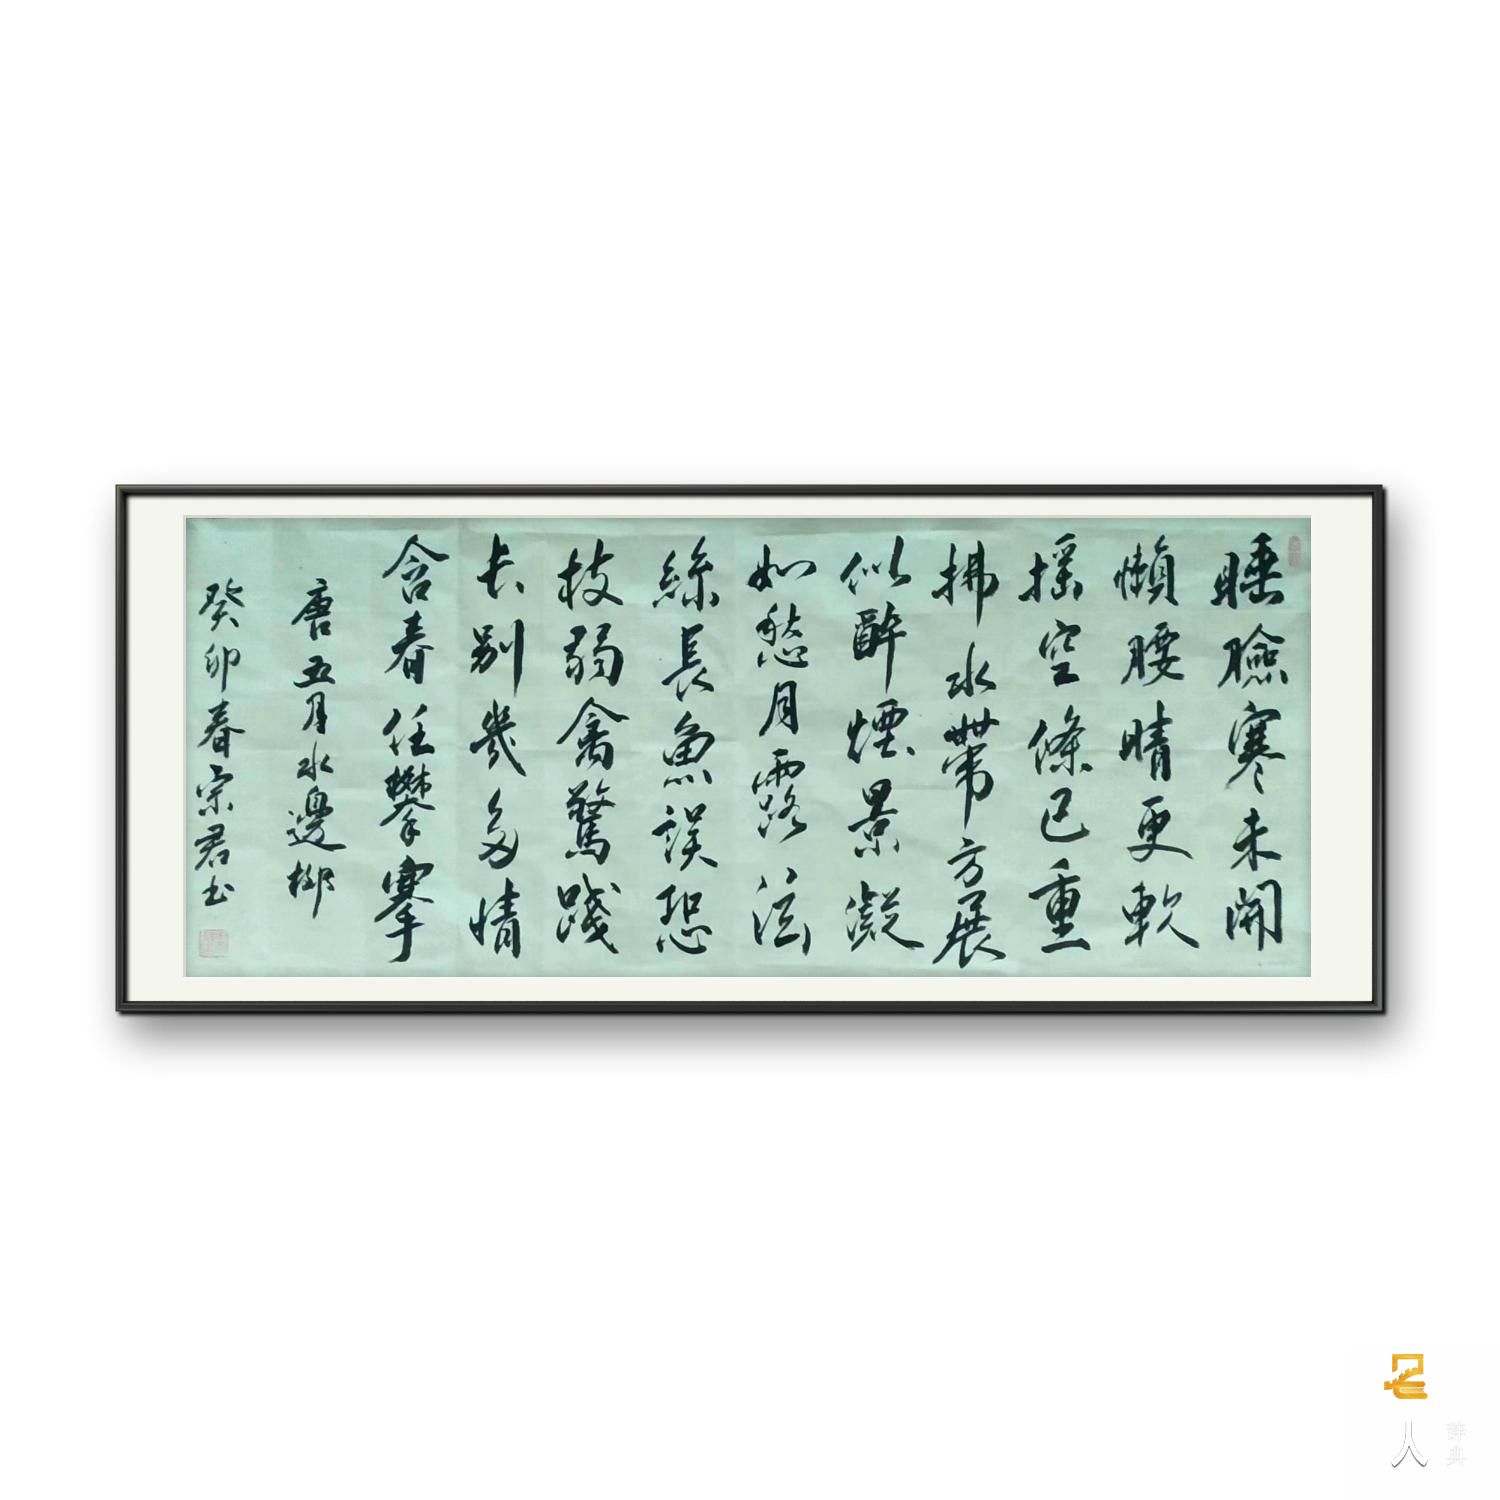 睡臉寒未開
懶腰晴更軟
搖空條已重
拂水帶方展
似醉煙景凝
如愁月露泫
絲長魚誤恐
枝弱禽驚踐
长別幾多情
含春任攀搴
唐五月水邊柳
癸卯春宗君书
人
辞典